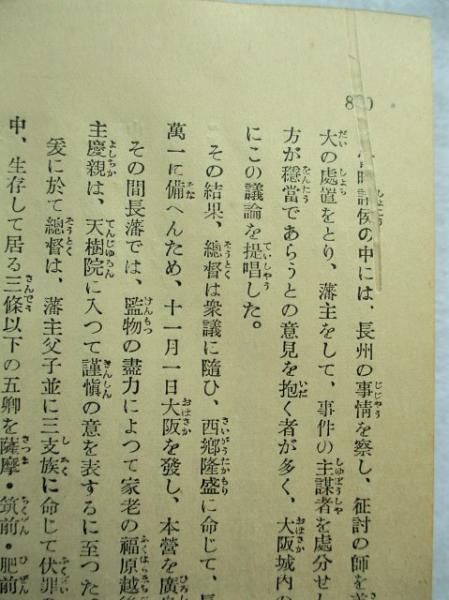 830
諸侯の中には、長州の事情を察し、征討の師を
大の處置をとり、藩主をして、事件の主謀者を處分せ
方が穩當であらうとの意見を抱く者が多く、大阪城内の
にこの議論を提唱した。
その結果、總督は衆議に隨ひ、西鄕隆盛に命じて、
萬一に備へんため、十一月一日大阪を發し、本營を廣
その間長藩では、監物の盡力によつて家老の福原越後
主慶親は、天樹院に入つて謹愼の意を表するに至つた。
爰に於て總督は、藩主父子並に三支族に命じて伏罪の
中、生存して居る三條以下の五卿を薩摩・筑前・肥前